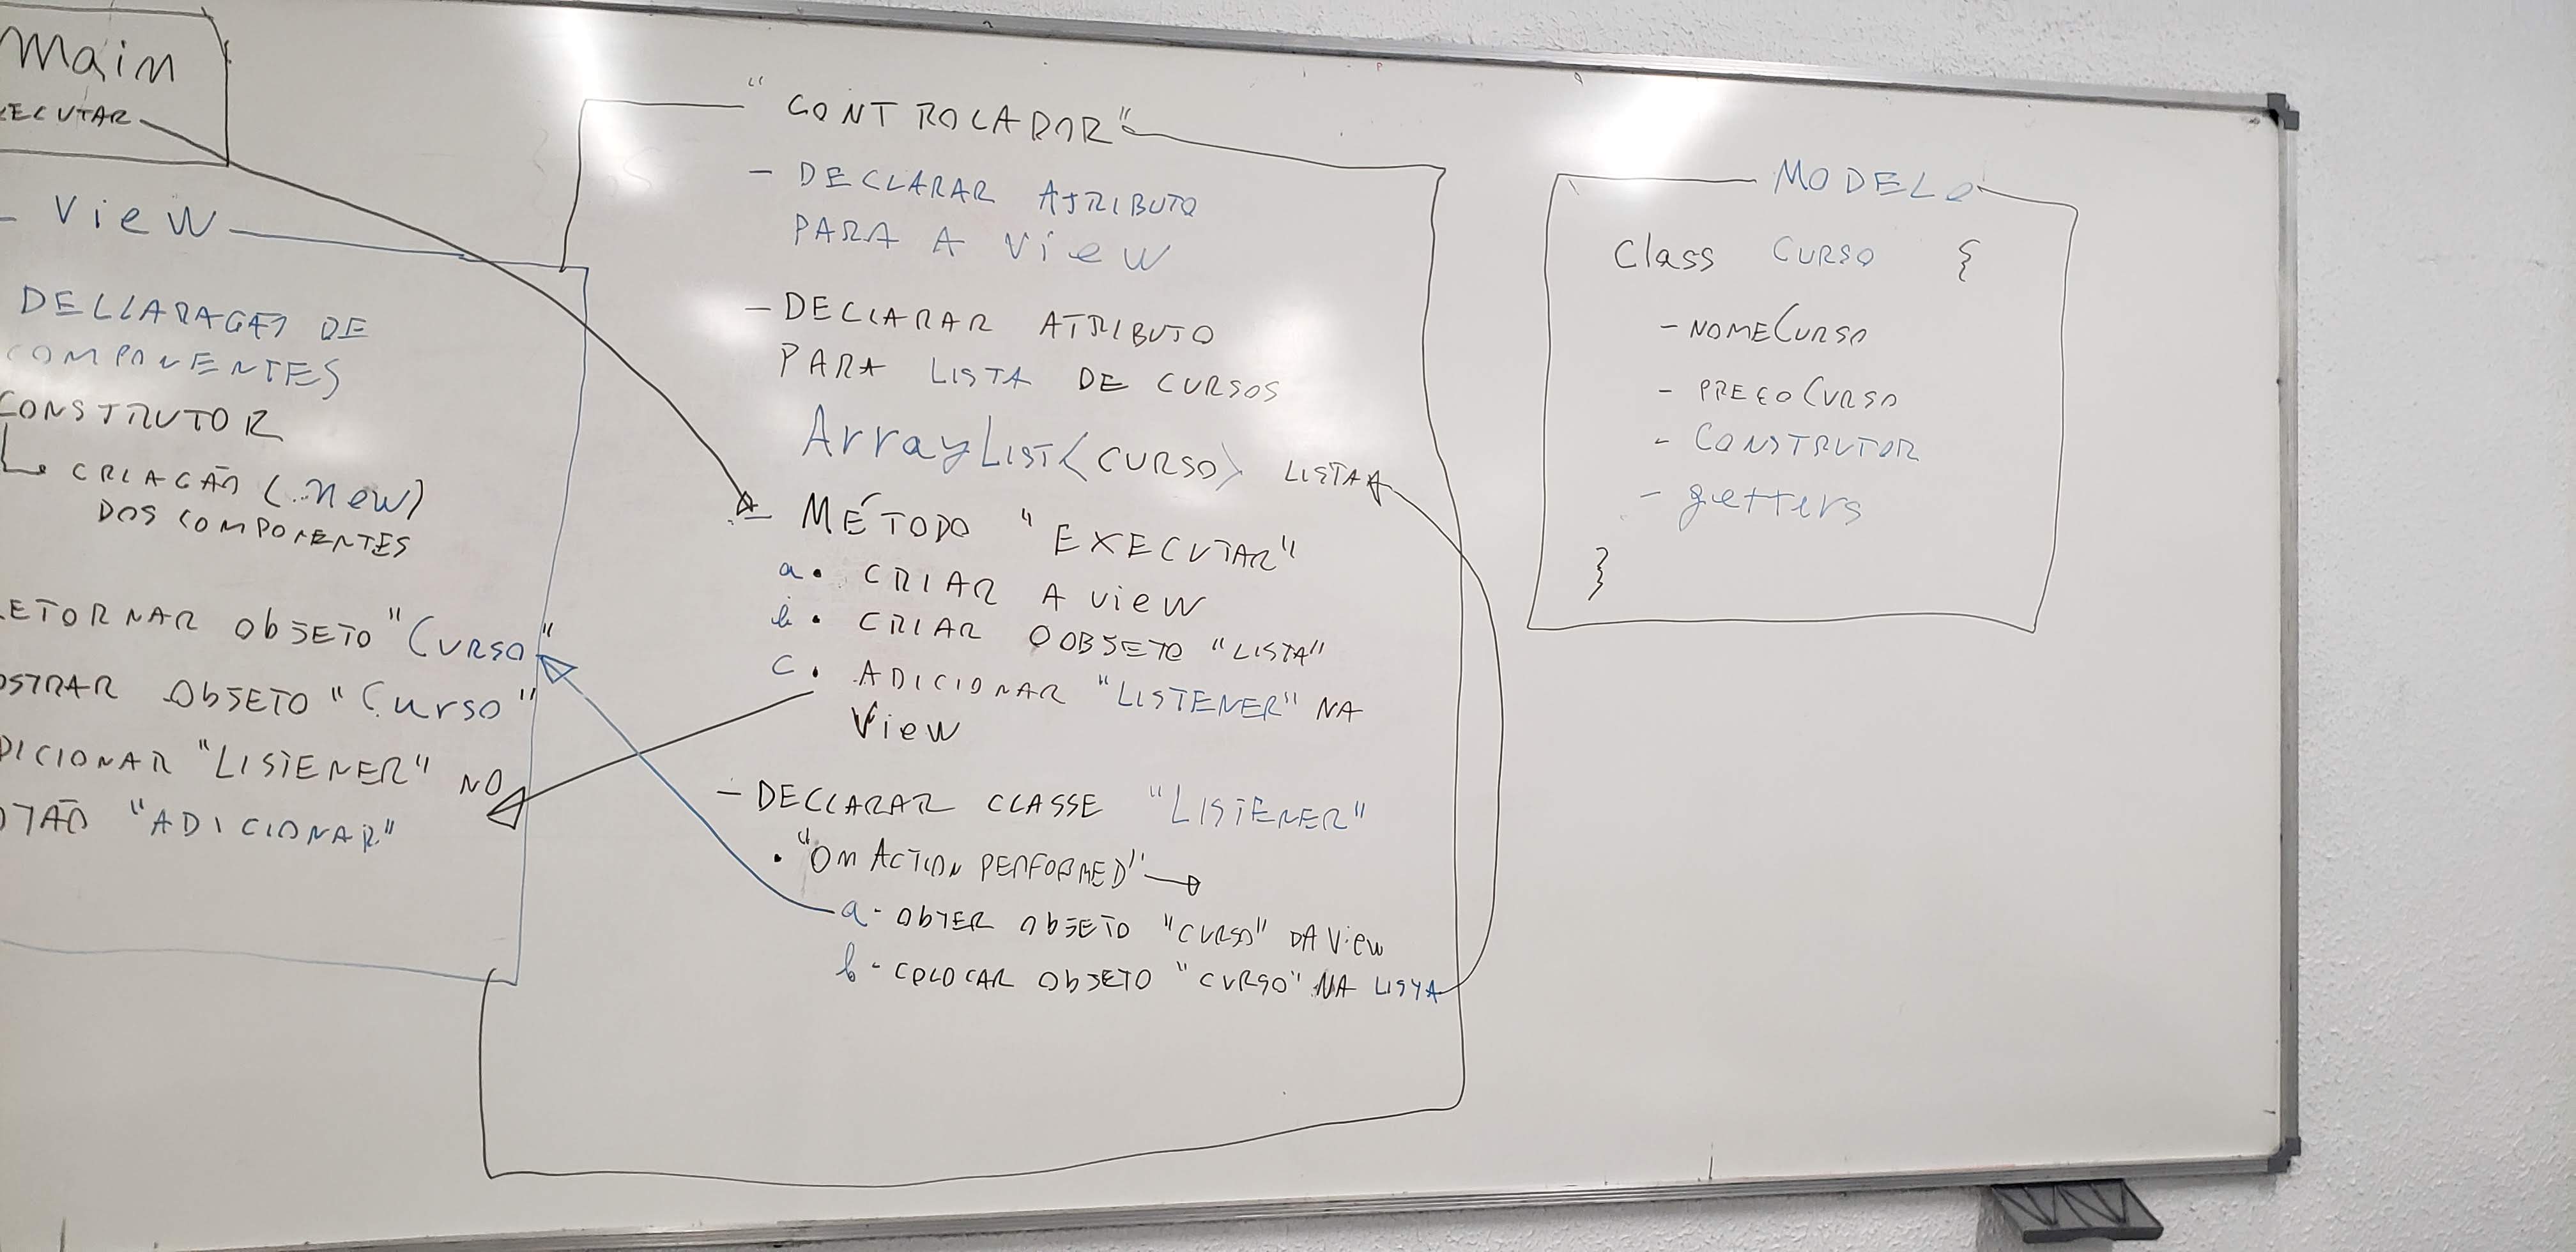 Main
ECUTAR
- View
DECLARAÇÃO DE
COMPONENTES
CONSTRUTOR
CRIAÇÃO (.new)
DOS COMPONENTES
ETORNAR ObJETO "Curso"
OSTRAR ObJETO "Curso"
DICIONAR "LISTENER" NO
OTÃO "ADICIONAR"
"CONTROLADOR"
- DECLARAR ATRIBUTO
PARA A View
- DECLARAR ATRIBUTO
PARA LISTA DE CURSOS
ArrayList<CURSO> LISTA
- MÉTODO "EXECUTAR"
a. CRIAR A view
b. CRIAR O OBJETO "LISTA"
c. ADICIONAR "LISTENER" NA
View
- DECLARAR CLASSE "LISTENER"
. "ON ACTION PERFORMED"
a - ObTER ObJETO "CURSO" DA View
b - COLOCAR ObJETO "CURSO" NA LISTA
MODELO
Class CURSO {
- NOMECURSO
- PREÇOCURSO
- CONSTRUTOR
- getters
}